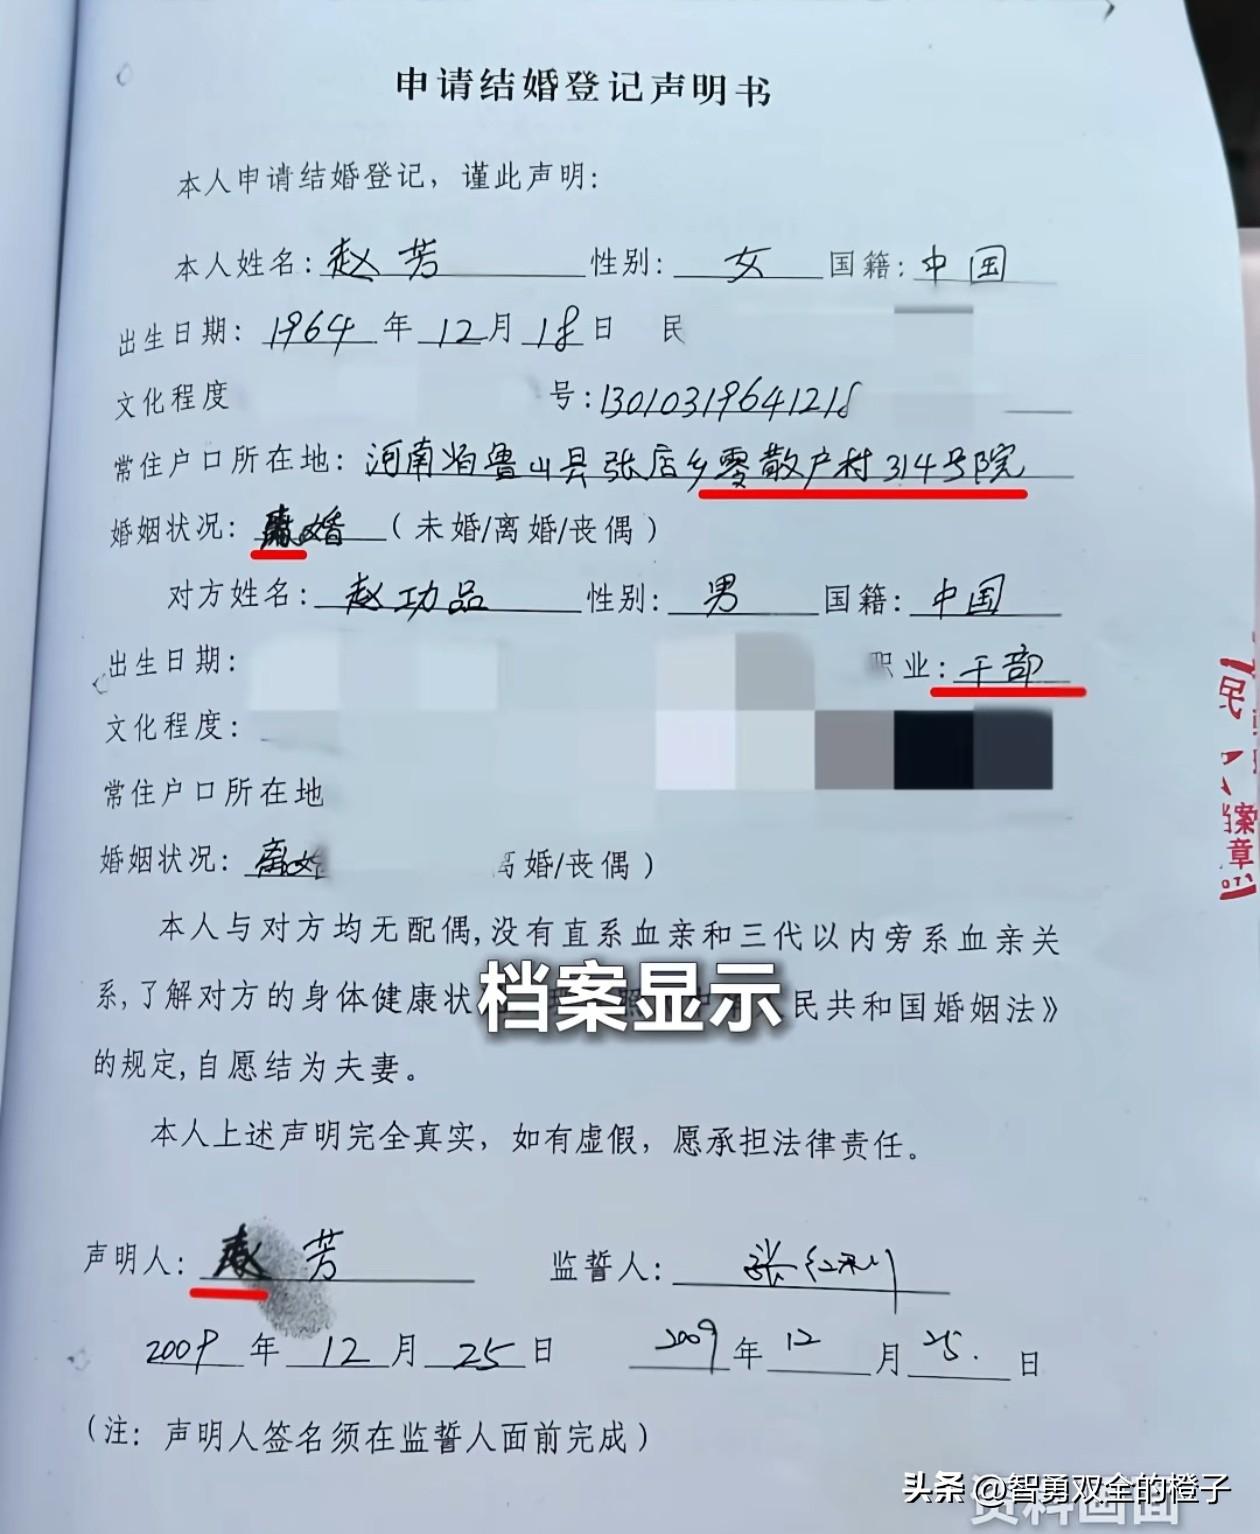 申请结婚登记声明书
本人申请结婚登记，谨此声明：
本人姓名：赵芳 性别：女 国籍：中国
出生日期：1964年12月18日 民
文化程度 号：13010319641218
常住户口所在地：河南省鲁山县张店乡零散户村314号院
婚姻状况：离婚（未婚/离婚/丧偶）
对方姓名：赵功品 性别：男 国籍：中国
出生日期： 职业：干部
文化程度：
常住户口所在地
婚姻状况：离婚 离婚/丧偶）
本人与对方均无配偶,没有直系血亲和三代以内旁系血亲关
系,了解对方的身体健康状 民共和国婚姻法》
档案显示
的规定,自愿结为夫妻。
本人上述声明完全真实，如有虚假，愿承担法律责任。
声明人：赵芳 监誓人：张
2009年12月25日 2009年12月25.日
（注：声明人签名须在监誓人面前完成）
民
档案
章
头条 @智勇双全的橙子
资料画面